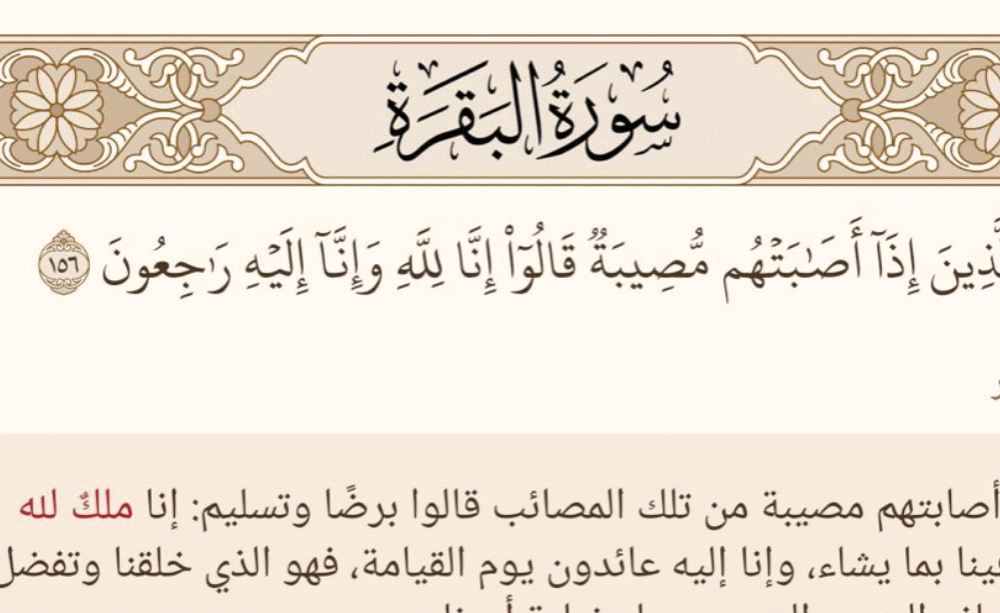 سُورَةُ البَقَرَةِ
إِذَآ أَصَٰبَتْهُم مُّصِيبَةٌ قَالُوٓا۟ إِنَّا لِلَّهِ وَإِنَّآ إِلَيْهِ رَٰجِعُونَ ١٥٦
أصابتهم مصيبة من تلك المصائب قالوا برضًا وتسليم: إنا ملكٌ لله
بما يشاء، وإنا إليه عائدون يوم القيامة، فهو الذي خلقنا وتفضل